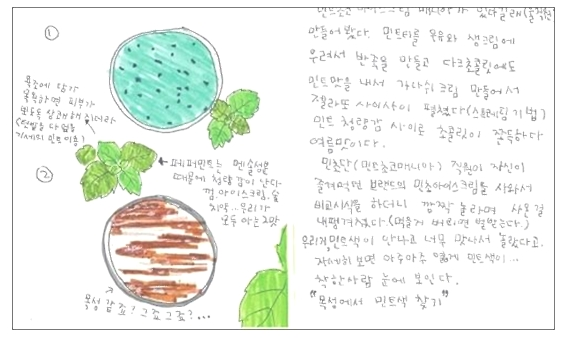 ①
욕조에 담가
목욕하면 피부가
반들반들 상쾌해지더라
(텃밭을 다 덮을
기세의 민트 이층)
②
← 페퍼민트는 멘솔성분
때문에 청량감이 난다
껌, 아이스크림, 술
치약.. 우리가
모두 아는 그 맛
목성 같죠! 그죠 그죠?...
민트초코 아이스크림 매니아가 있다길래
만들어봤다. 민트티를 우유와 생크림에
우려서 반죽을 만들고 다크초콜릿에도
민트맛을 내서 가나슈크림 만들어서
젤라또 사이사이 펼쳤다 (스트라이프 기법)
민트 청량감 사이로 초콜릿이 쫀득하다
여름맛이다.
민초단 (민트초코매니아) 직원이 자신이
즐겨먹던 브랜드의 민초아이스크림을 사와서
비교시식을 하더니 깜짝 놀라며 사온걸
내팽겨쳤다. (먹을게 버리면 벌받는다.)
우리게 민트색이 안나고 너무 맛나서 놀랐다고.
자세히 보면 아주아주 옅게 민트색이...
착한사람 눈에 보인다.
"목성에서 민트색 찾기"